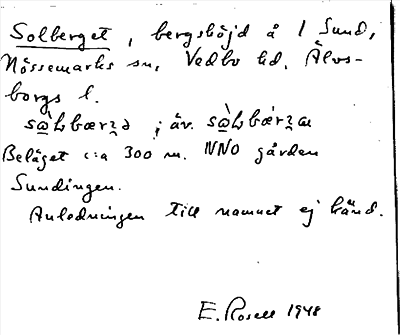 Solberget, bergshöjd å 1 Sund,
Nössemarks sn, Vedbo hd, Älvs-
borgs l.
; äv.
Beläget c:a 300 m. NNO gården
Sundingen.
Anledningen till namnet ej känd.
E. Rosell 1948